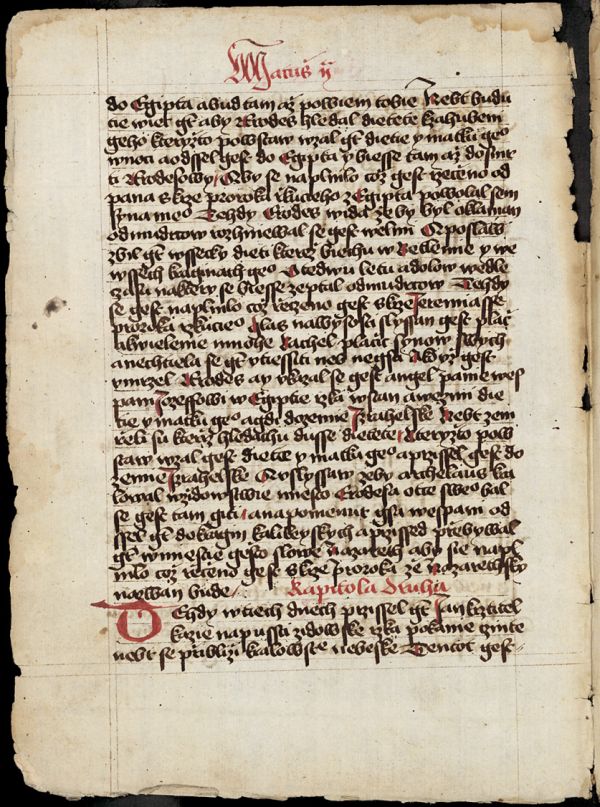 Matús ij
do Egipta a bud tam až powiem tobie Nebt budu
cie wiec gt aby Erodes hledal dietete kzahubení
geho kteryžto powstaw wzal gt dietie y matku geo
wnoci a odssel gest do Egipta y biesse tam až dosmr
ti Erodesowy / Aby se naplnilo což gest rzeceno od
pana skrze proroka rkuciego z Egipta powolal sem
syna meo Tehdy Erodes wida že by byl oklaman
od mudrcow rozhniewal se gest welmi A poslaw
zbil gt wssecky dieti kterež biechu w Betlemie y we
wssech kraginach geo Od dwu letu a dolow wedle
času na ktery se biesse zeptal od mudrcow Tehdy
se gest naplnilo což rzeceno gest skrze Jeremiasse
proroka rzkucieo Hlas na wysosti slyssan gest plač
a kwielenie mnohe Rachel plačic synow swych
a nechtiela se gt vtiessiti neb negsu A když gest
vmrzel Erodes ay vkazal se gest angel panie we s
pani Jozeffowi w Egiptie rzka wstan a wezmi die
tie y matku geo a gdi do zemie Jzrahelske Nebt zem
rzeli su kterzy hledachu dusse dietete / kteryžto pow
staw wzal gest dietie y matku geo a przissel gest do
zemie Jzrahelske A vslyssaw žeby archelaus kra
lowal w židowstwie miesto Erodesa otce sweo bal
se gest tam giti / a napomenut gsa we spani od
ssel gt do kragin kalileyskych a przissed przebywal
gt w miestie gesto slowe Nazareth aby sie napl
nilo což rzeceno gest skrze proroka že Nazarethsky
nazwan bude / Kapitola druha
Tehdy w tiech dnech przissel gt Jan krztitel
kažie na pussti židowske rzka pokanie czinte
nebt se przibliži kralowstwe nebeske Tentot gest